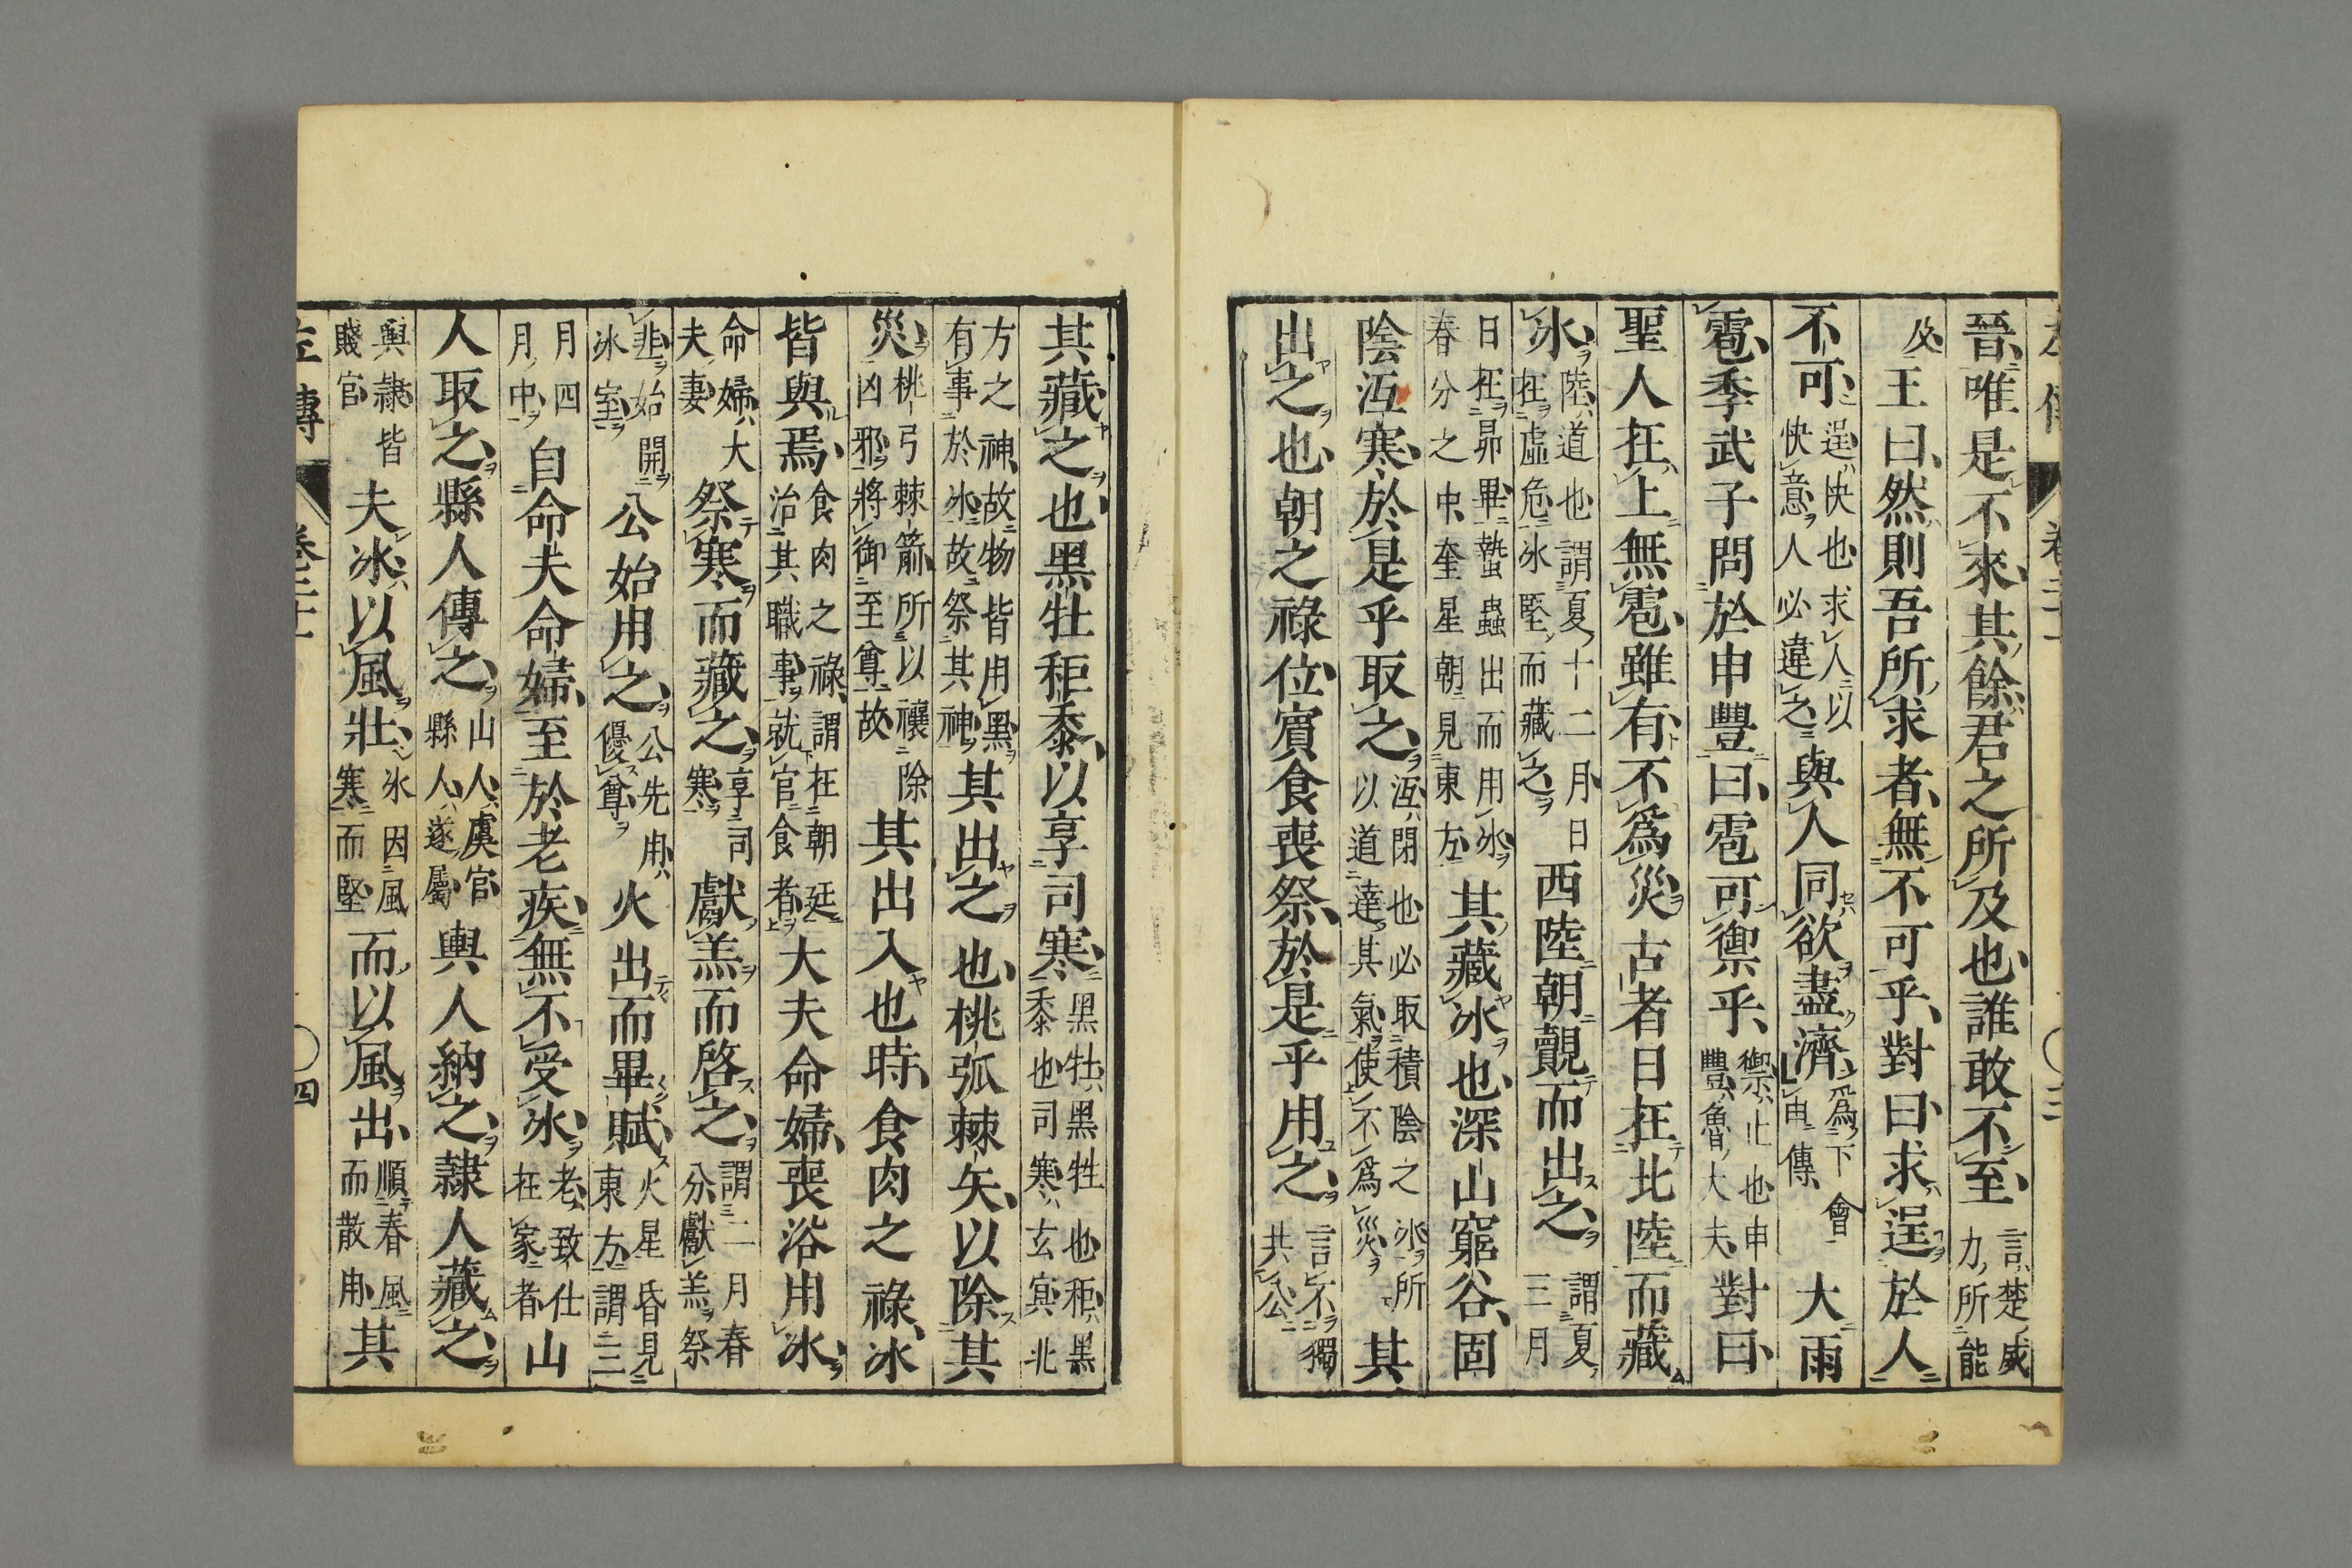 晉唯是不來其餘君之所及也誰敢不至言楚威力所能
及王曰然則吾所求者無不可乎對曰求逞於人
不可逞快也求人以快意人必違之與人同欲盡濟爲下會申傳大雨
雹季武子問於申豐曰雹可禦乎禦止也申豐魯大夫對曰
聖人在上無雹雖有不爲災古者日在北陸而藏
冰陸道也謂夏十二月日在虛危冰堅而藏之西陸朝覿而出之謂夏三月
日在昴畢蟄蟲出而用冰春分之中奎星朝見東方其藏冰也深山窮谷固
陰沍寒於是乎取之沍閉也必取積陰之冰所以道達其氣使不爲災其
出之也朝之祿位賓食喪祭於是乎用之言不獨共公
左傳 卷二十一 〇三
其藏之也黑牡秬黍以享司寒黑牡黑牲也秬黑黍也司寒玄冥北
方之神故物皆用黑有事於冰故祭其神其出之也桃弧棘矢以除其
災桃弓棘箭所以禳除凶邪將御至尊故其出入也時食肉之祿冰
皆與焉食肉之祿謂在朝廷治其職事就官食者大夫命婦喪浴用冰
命婦大夫妻祭寒而藏之享司寒獻羔而啓之謂二月春分獻羔祭
韭始開冰室公始用之公先用優尊火出而畢賦火星昏見東方謂三
月四月中自命夫命婦至於老疾無不受冰老致仕在家者山
人取之縣人傳之山人虞官縣人遂屬輿人納之隸人藏之
輿隸皆賤官夫冰以風壯冰因風寒而堅而以風出順春風而散用其
左傳 卷二十一 〇四